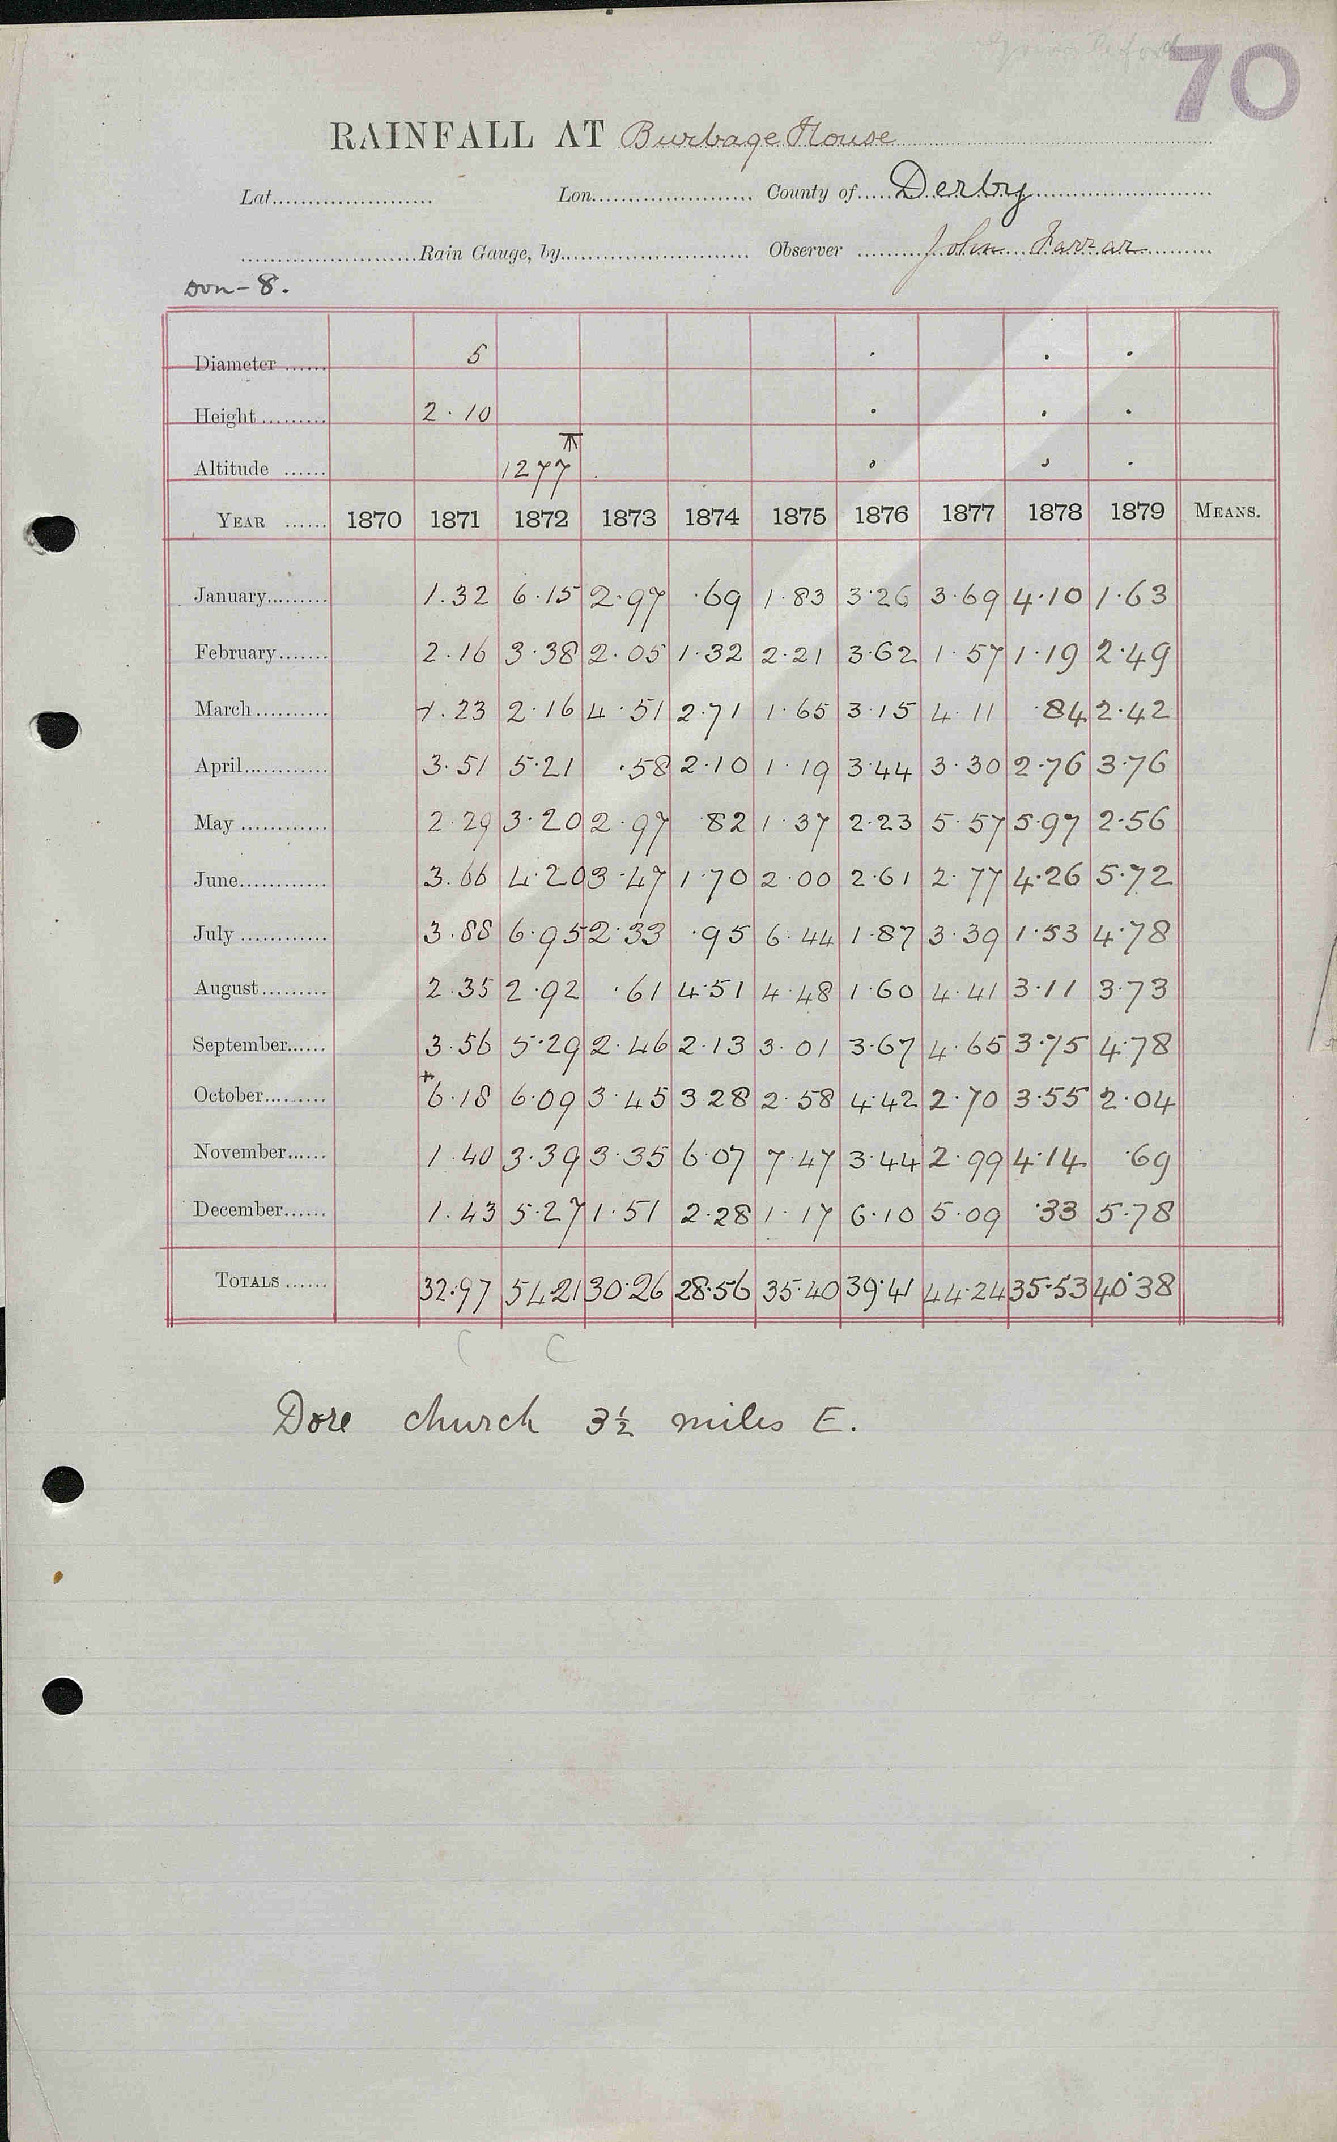 70
RAINFALL AT Burbage House
Lat. Lon. County of Derby
Rain Gauge, by Observer John Farrar
Don-8.
Diameter 5
Height 2.10
Altitude 1277
YEAR 1870 1871 1872 1873 1874 1875 1876 1877 1878 1879 MEANS.
January 1.32 6.15 2.97 .69 1.83 3.26 3.69 4.10 1.63
February 2.16 3.38 2.05 1.32 2.21 3.62 1.57 1.19 2.49
March 1.23 2.16 4.51 2.71 1.65 3.15 4.11 .84 2.42
April 3.51 5.21 .58 2.10 1.19 3.44 3.30 2.76 3.76
May 2.29 3.20 2.97 .82 1.37 2.23 5.57 5.97 2.56
June 3.66 4.20 3.47 1.70 2.00 2.61 2.77 4.26 5.72
July 3.88 6.95 2.33 .95 6.44 1.87 3.39 1.53 4.78
August 2.35 2.92 .61 4.51 4.48 1.60 4.41 3.11 3.73
September 3.56 5.29 2.46 2.13 3.01 3.67 4.65 3.75 4.78
October 6.18 6.09 3.45 3.28 2.58 4.42 2.70 3.55 2.04
November 1.40 3.39 3.35 6.07 7.47 3.44 2.99 4.14 .69
December 1.43 5.27 1.51 2.28 1.17 6.10 5.09 .33 5.78
TOTALS 32.97 54.21 30.26 28.56 35.40 39.41 44.24 35.53 40.38
Dore church 3½ miles E.